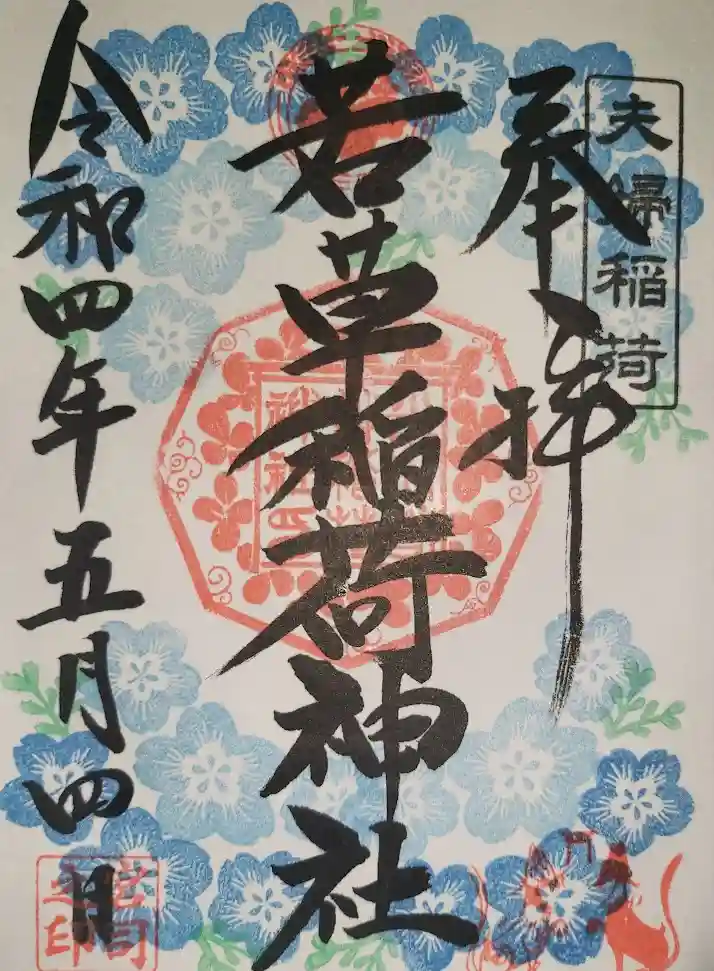 夫婦稲荷
奉拝
若草稲荷神社
令和四年五月四日
宮司之印